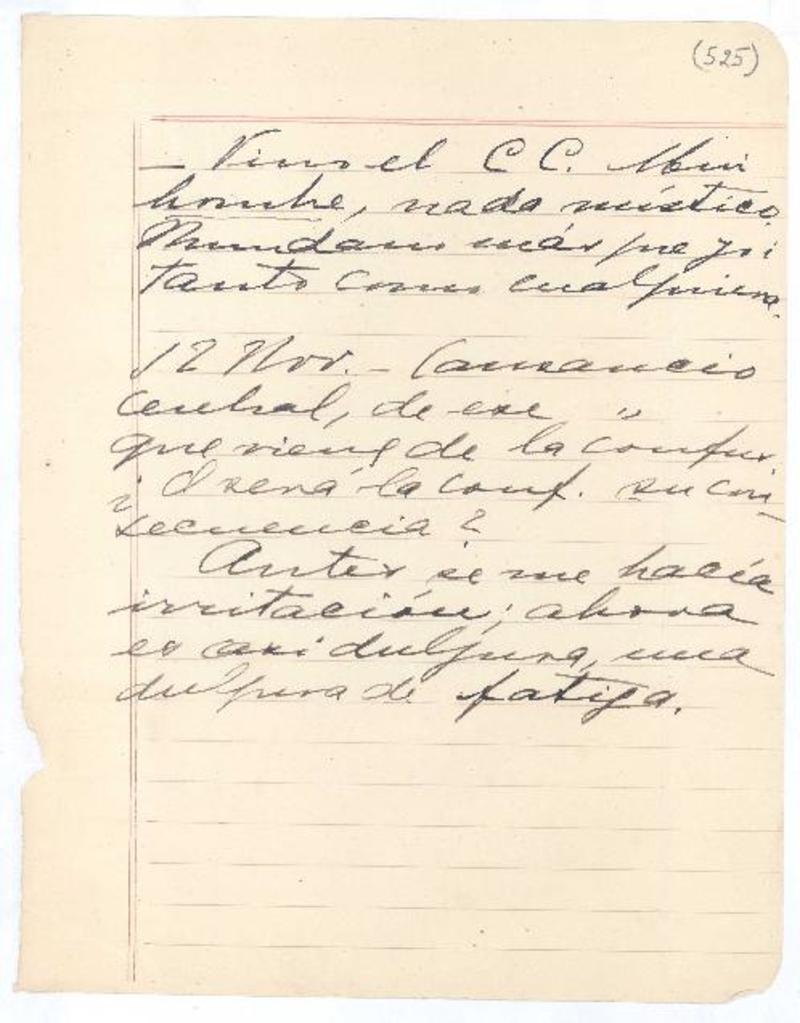 (525)
— Vino el C C. Mui
hombre, nada místico.
Mundano más que yo i
tanto como cualquiera.
12 Nov. - Cansancio
central, de ese "
que viene de la confus.
¿O será la conf. su con-
secuencia?
Antes se me hacía
irritación; ahora
es casi dulzura, una
dulzura de fatiga.